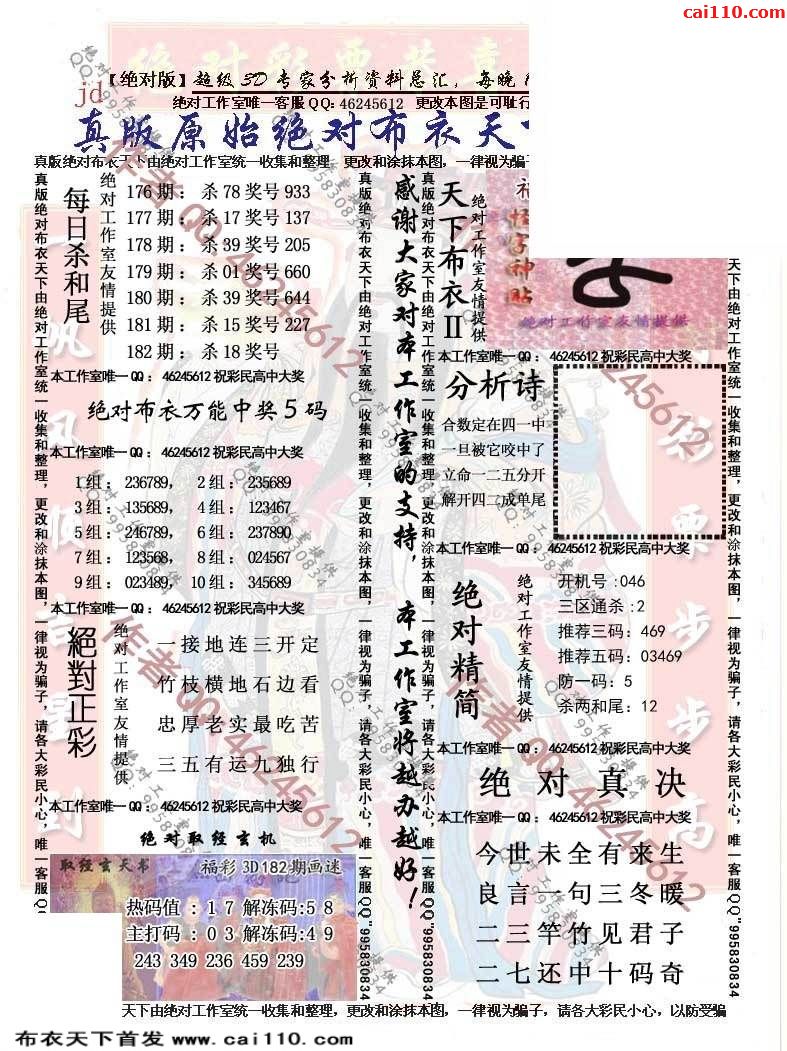 cai110.com
绝对彩票共享
【绝对版】超级3D专家分析资料总汇，每晚
jd
绝对工作室唯一客服QQ:46245612 更改本图是可耻行
真版原始绝对布衣天
真版绝对布衣天下由绝对工作室统一收集和整理，更改和涂抹本图，一律视为骗
真版绝对布衣天下由绝对工作室统一收集和整理，更改和涂抹本图，一律视为骗子，请各大彩民小心，唯一客服QQ
每日杀和尾
绝对工作室友情提供
176期：杀78奖号933
177期：杀17奖号137
178期：杀39奖号205
179期：杀01奖号660
180期：杀39奖号644
181期：杀15奖号227
182期：杀18奖号
本工作室唯一QQ：46245612祝彩民高中大奖
绝对布衣万能中奖5码
本工作室唯一QQ：46245612祝彩民高中大奖
1组：236789，2组：235689
3组：135689，4组：123467
5组：246789，6组：237890
7组：123568，8组：024567
9组：023489，10组：345689
本工作室唯一QQ：46245612祝彩民高中大奖
絕對正彩
绝对工作室友情提供
一接地连三开定
竹枝横地石边看
忠厚老实最吃苦
三五有运九独行
本工作室唯一QQ：46245612祝彩民高中大奖
绝对取经玄机
取经玄天书
福彩3D182期画迷
热码值：17解冻码:58
主打码：03解冻码:49
243 349 236 459 239
真版绝对布衣天下由绝对工作室统一收集和整理，更改和涂抹本图，一律视为骗子，请各大彩民小心，唯一客服QQ"995830834
感谢大家对本工作室的支持，本工作室将越办越好！
真版绝对布衣天下由绝对工作室统一收集和整理，更改和涂抹本图，一律视为骗子，请各大彩民小心，唯一客服QQ"995830834
天下布衣II
绝对工作室友情提供
怪字神贴
绝对工作室友情提供
本工作室唯一QQ：46245612祝彩民高中大奖
分析诗
合数定在四一中
一旦被它咬中了
立命一二五分开
解开四二成单尾
本工作室唯一QQ：46245612祝彩民高中大奖
绝对精简
绝对工作室友情提供
开机号:046
三区通杀:2
推荐三码：469
推荐五码：03469
防一码：5
杀两和尾：12
本工作室唯一QQ：46245612祝彩民高中大奖
绝对真决
本工作室唯一QQ：46245612祝彩民高中大奖
今世未全有来生
良言一句三冬暖
二三竿竹见君子
二七还中十码奇
天下由绝对工作室统一收集和整理，更改和涂抹本图，一律视为骗子，请各大彩民小心，唯一客服QQ"995830834
天下由绝对工作室统一收集和整理，更改和涂抹本图，一律视为骗子，请各大彩民小心，以防受骗
作者QQ:46245612
绝对工作室提供
QQ:995830834
布衣天下首发 www.cai110.com